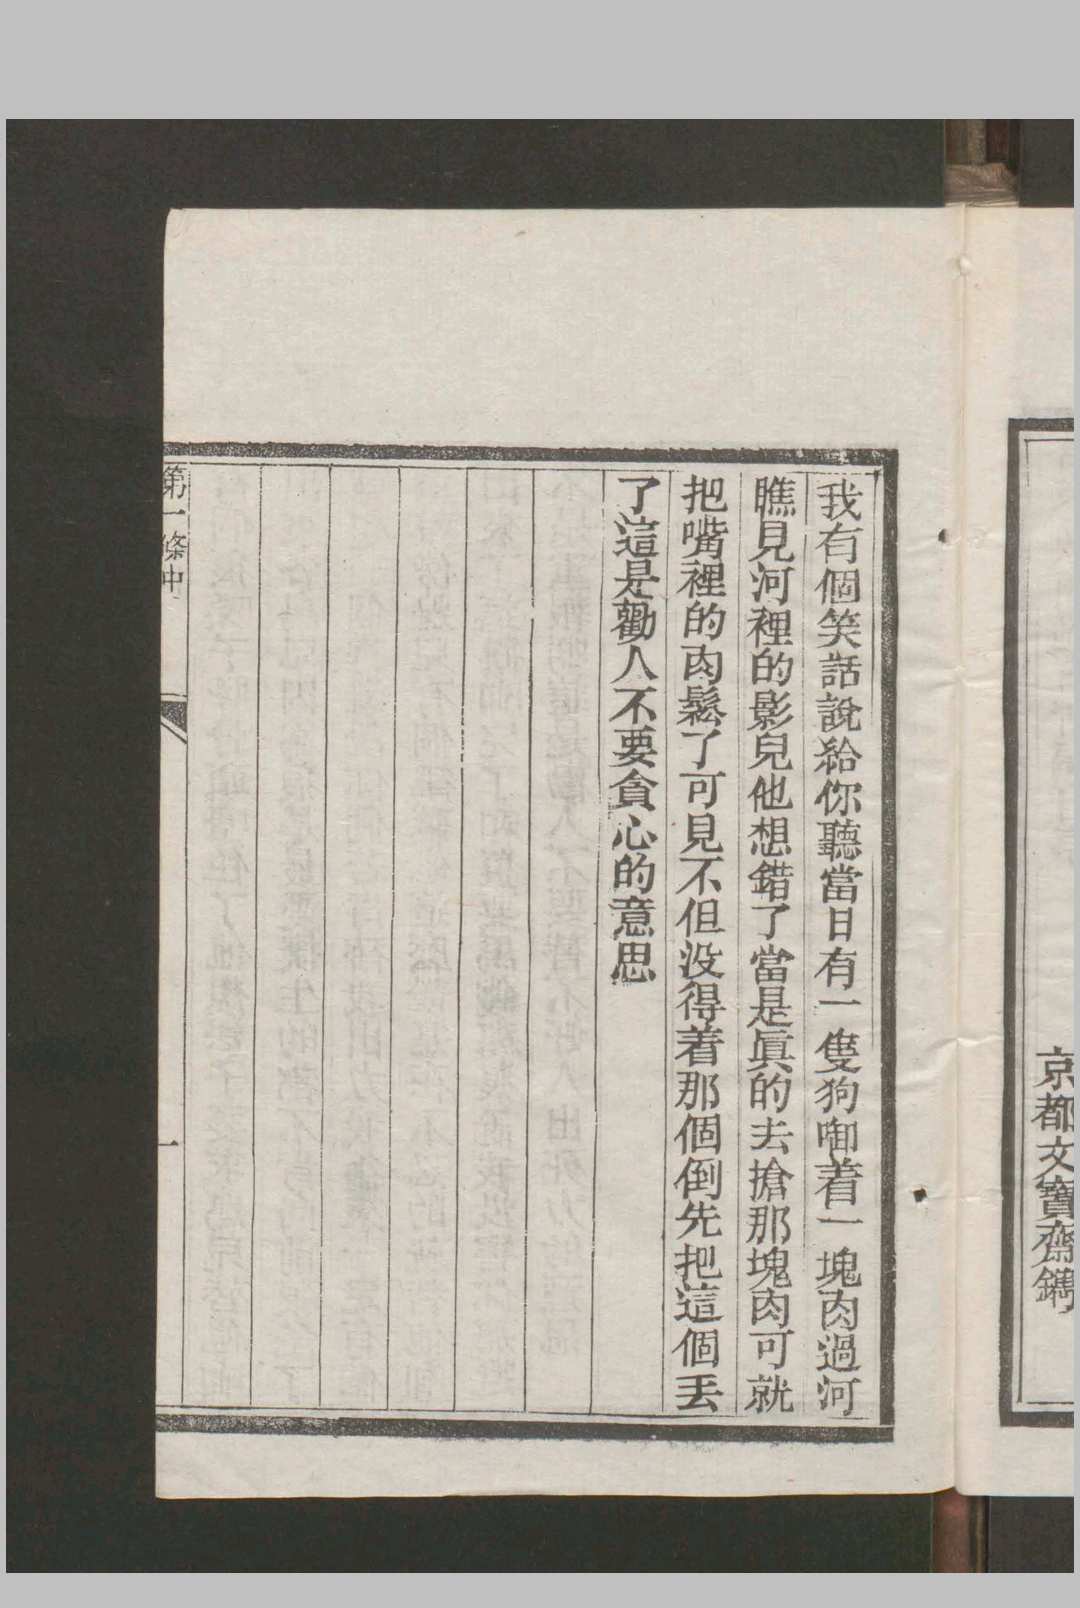 京都文寶齋鐫
我有個笑話說給你聽當日有一隻狗啣着一塊肉過河
瞧見河裡的影兒他想錯了當是眞的去搶那塊肉可就
把嘴裡的肉鬆了可見不但没得着那個倒先把這個丟
了這是勸人不要貪心的意思
第一條中
一